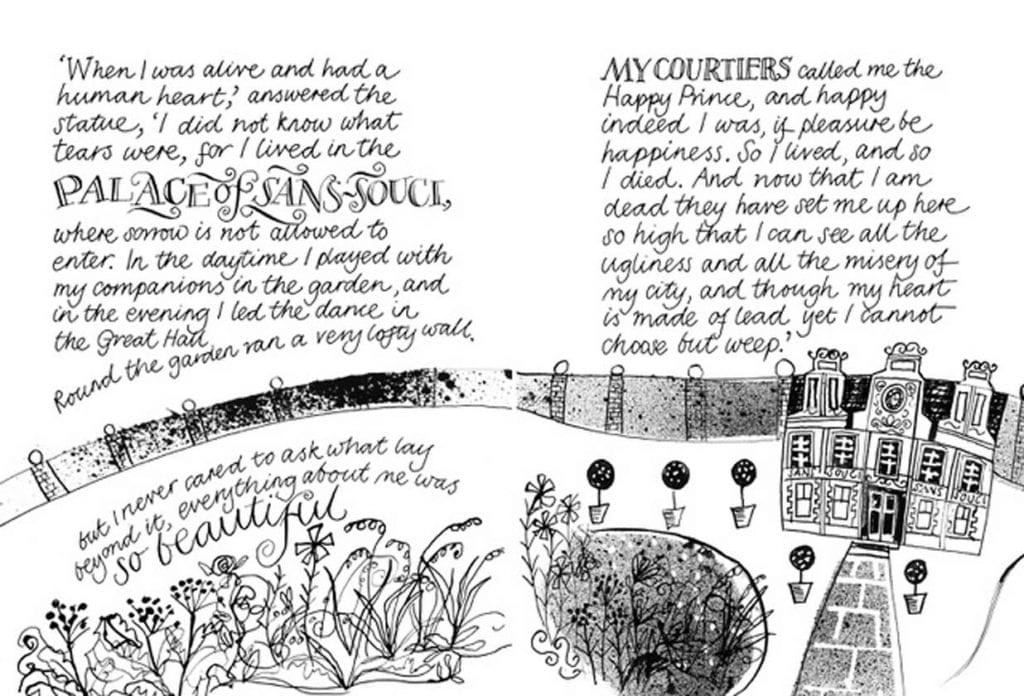 ‘When I was alive and had a
human heart,’ answered the
statue, ‘I did not know what
tears were, for I lived in the
PALACE of SANS-SOUCI,
where sorrow is not allowed to
enter. In the daytime I played with
my companions in the garden, and
in the evening I led the dance in
the Great Hall.
Round the garden ran a very lofty wall,
but I never cared to ask what lay
beyond it, everything about me was
so beautiful
MY COURTIERS called me the
Happy Prince, and happy
indeed I was, if pleasure be
happiness. So I lived, and so
I died. And now that I am
dead they have set me up here
so high that I can see all the
ugliness and all the misery of
my city, and though my heart
is made of lead yet I cannot
choose but weep.’
SANS SOUCI
SANS SOUCI